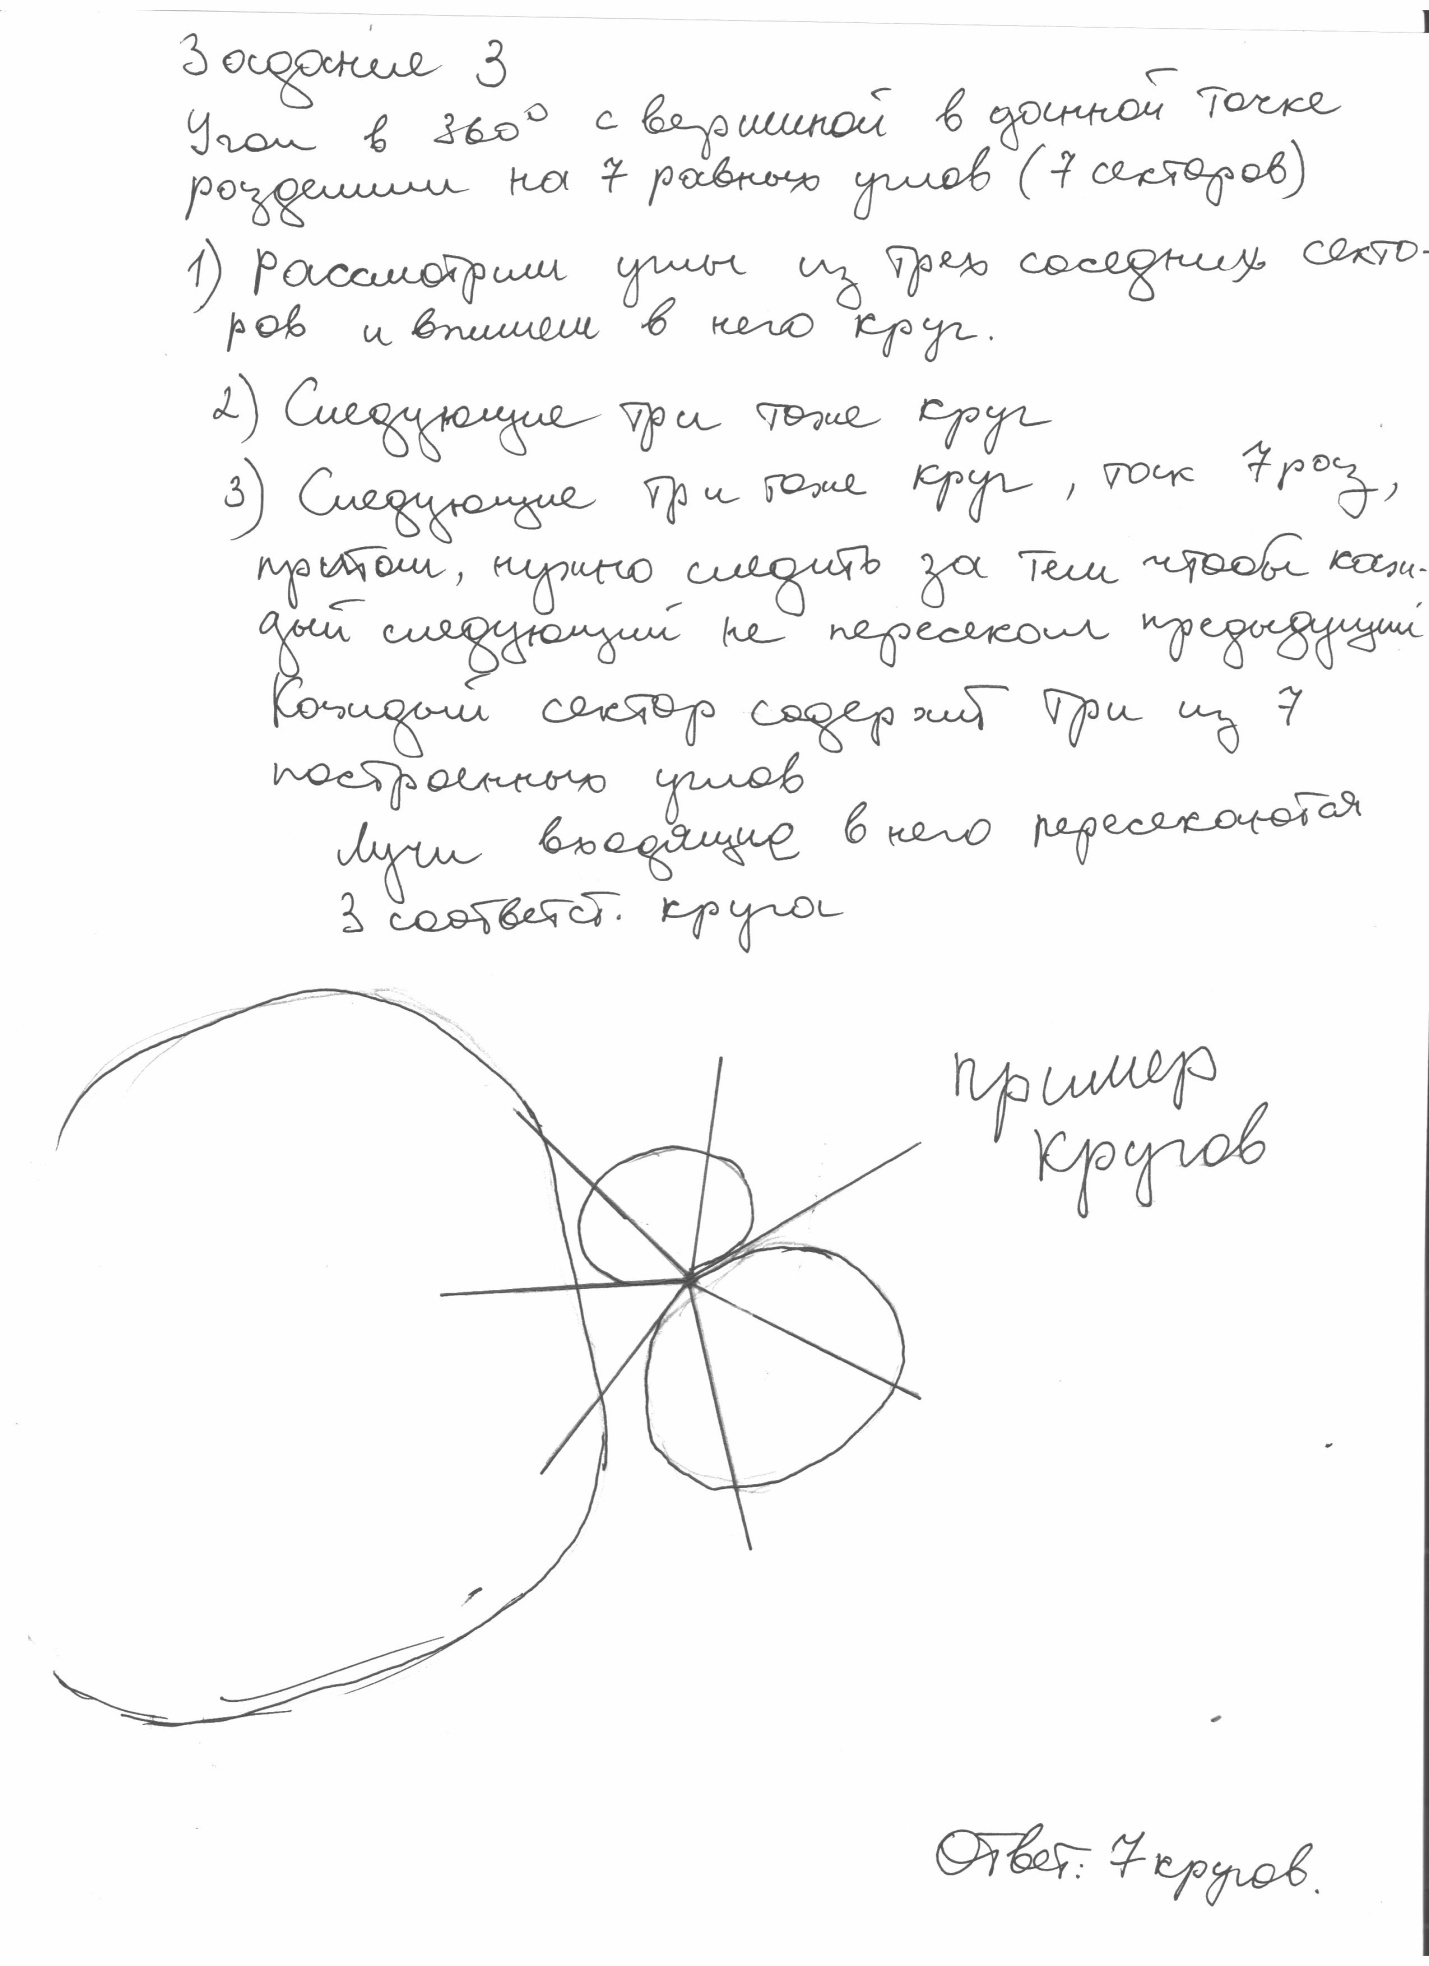 Задание 3
Угол в 360° с вершиной в данной точке
разделим на 7 равных углов (7 секторов)
1) Рассмотрим углы из трех соседних секто-
ров и впишем в него круг.
2) Следующие три тоже круг
3) Следующие три тоже круг, так 7 раз,
притом, нужно следить за тем чтобы каж-
дый следующий не пересекал предыдущий
Каждый сектор содержит три из 7
построенных углов
Лучи входящие в него пересекаются
3 соответст. круга
пример
кругов
Ответ: 7 кругов.